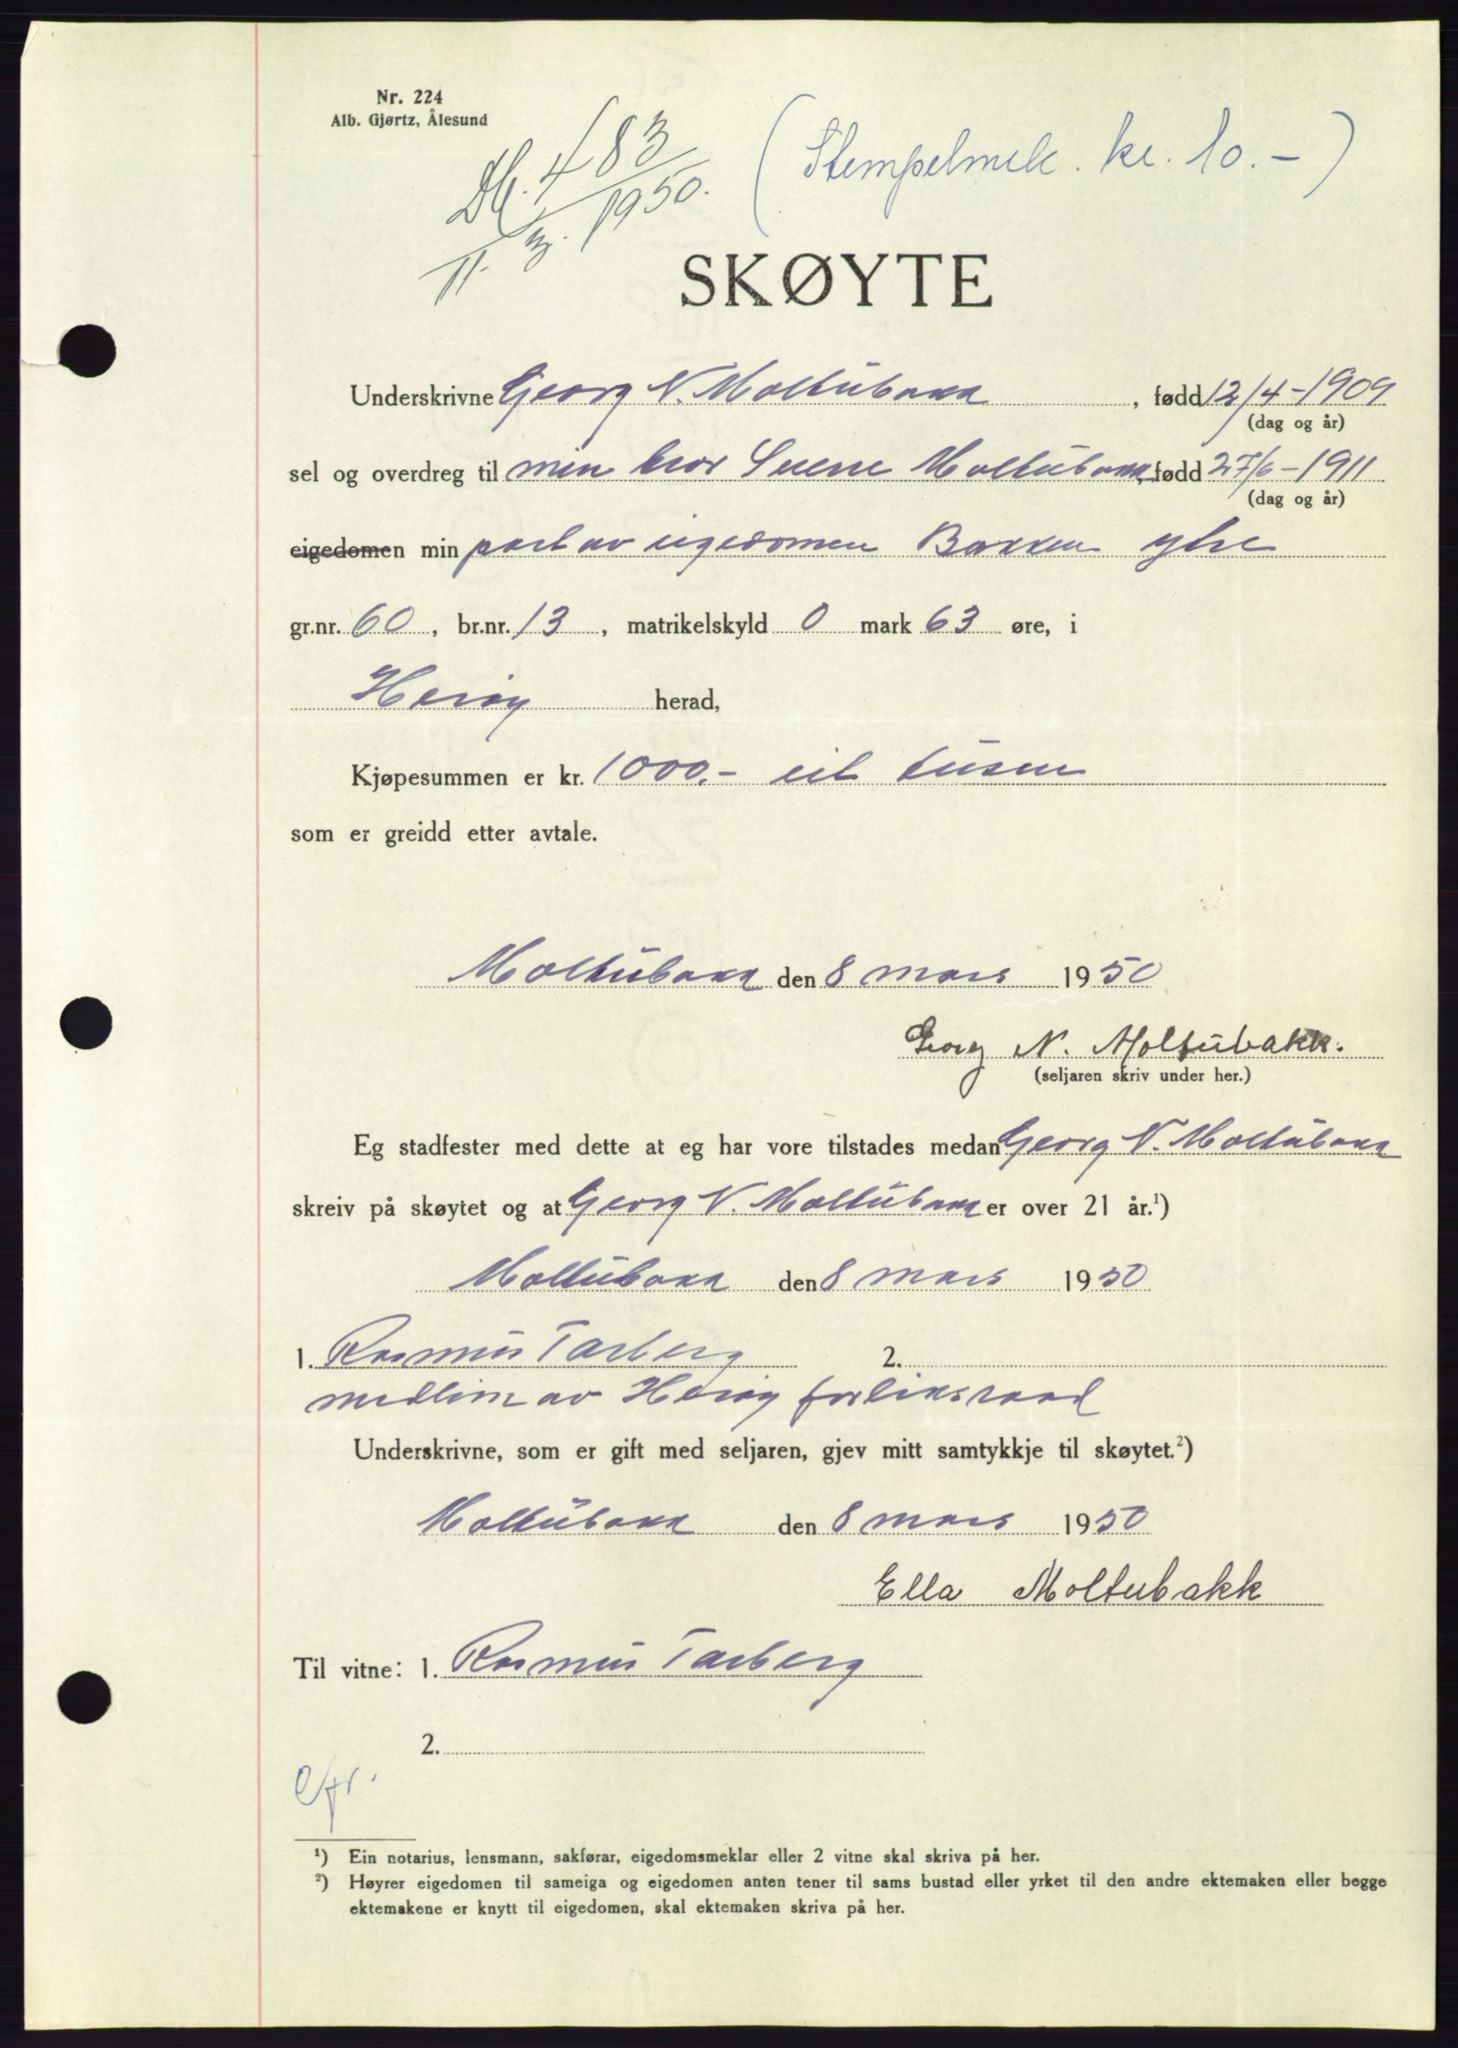 Nr. 224
Alb. Gjørtz, Ålesund
Db. 483/1950.
11. 3.
(Stempelmrk. kr. 10.-)
SKØYTE
Underskrivne Georg N. Moltubakk, fødd 12/4-1909
(dag og år)
sel og overdreg til min bror Sverre Moltubakk, fødd 27/6-1911
(dag og år)
eigedomen min part av eigedomen Bakken ytre
gr.nr. 60, br.nr. 13, matrikelskyld 0 mark 63 øre, i
Herøy herad,
Kjøpesummen er kr. 1000.- eit tusen
som er greidd etter avtale.
Moltubakk den 8 mars 1950
Georg N. Moltubakk.
(seljaren skriv under her.)
Eg stadfester med dette at eg har vore tilstades medan Georg N. Moltubakk
skreiv på skøytet og at Georg N. Moltubakk er over 21 år.¹)
Moltubakk den 8 mars 1950
1. Rasmus Tarberg 2.
medlim av Herøy forliksraad
Underskrivne, som er gift med seljaren, gjev mitt samtykkje til skøytet.²)
Moltubakk den 8 mars 1950
Ella Moltubakk
Til vitne: 1. Rasmus Tarberg
2.
¹) Ein notarius, lensmann, sakførar, eigedomsmeklar eller 2 vitne skal skriva på her.
²) Høyrer eigedomen til sameiga og eigedomen anten tener til sams bustad eller yrket til den andre ektemaken eller begge
ektemakene er knytt til eigedomen, skal ektemaken skriva på her.